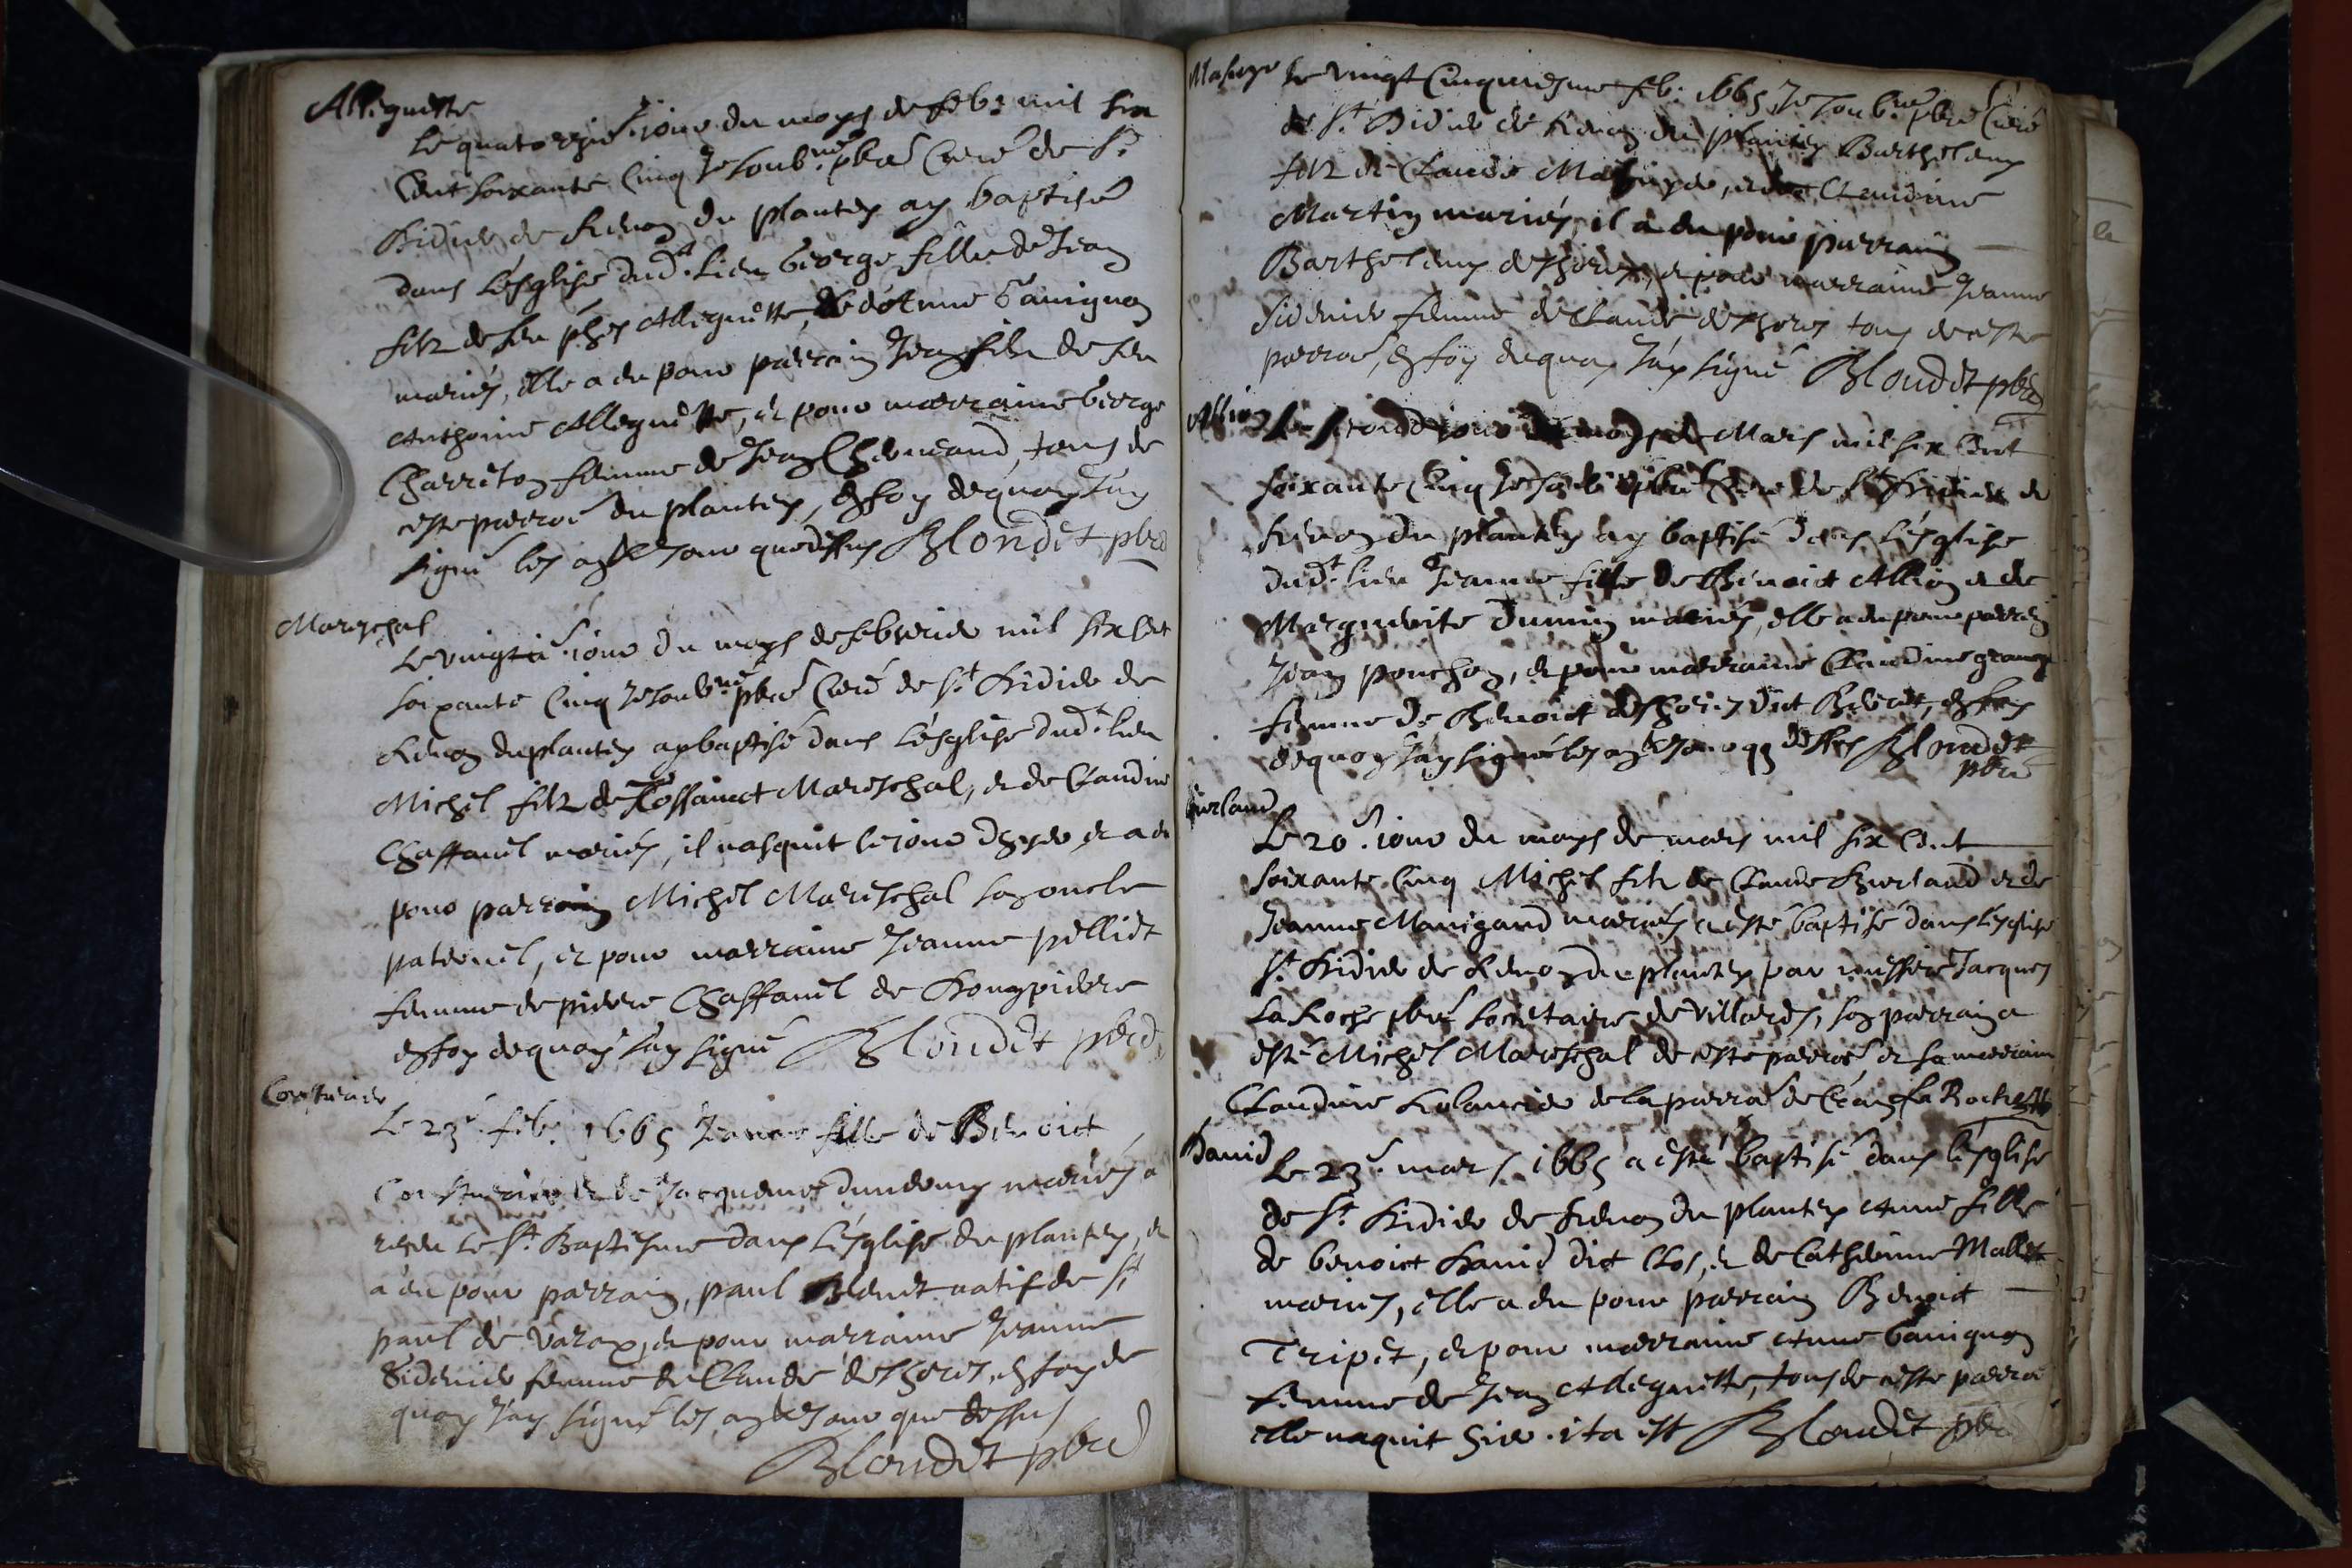 Alleguette
Le quatorzie. jour du moys de feb. mil six
cent soixante cinq Je soub.né pbre curé de St
Didier de Renon du plantey ay baptisé
dans L'esglise dud.t lieu George fille de Jean
filz de feu Alleguette, et d'Anne Gavignon
mariés, elle a eu pour parrain Jean filz de feu
Anthoine Alleguette, et pour marraine George
Charreton femme de Jean Cheveneand, tous de
ceste parroe du plantey, en foy dequoy J'ay
signé les an et Jour que dessus Blondet pbre
Mareschal
Le vingtie. jour du moys de febvrier mil six cent
soixante cinq Je soub.né pbre curé de St Didier de
Renon du plantey ay baptisé dans L'esglise dud.t lieu
Michel filz de Tossainct Mareschal, et de Claudine
Chaffauel mariés, il nasquit le jour d'hyer et a eu
pour parrain Michel Mareschal son oncle
paternel, et pour marraine Jeanne pelliet
femme de pierre Chaffauel de
en foy dequoy J'ay signé Blondet pbre
Costurier
Le 23e. feb. 1665 Jeanne fille de Benoict
Costurier et de Jacqueme mariés a
receu Le St. Baptesme dans L'esglise du plantey, et
a eu pour parrain, paul Blondet natif de St
paul de Varax, et pour marraine Jeanne
Siderier femme de Claude de Thores, en foy de
quoy J'ay signé les an et Jour que dessus
Blondet pbre
Masuyer Le vingt Cinquiesme feb. 1665 Je soub.né pbre Curé
de St. Didier de Renon du plantey Barthelemy
filz de Claude Masuyer, et de Claudine
Martin mariés, il a eu pour parrain
Barthelemy de Thores, et pour marraine Jeanne
Siderier femme de Claude de Thores tous de ceste
parroe, en foy dequoy J'ay signé Blondet pbre
Allion Le second jour du moys de Mars mil six Cent
soixante Cinq Je soub. pbre Curé de St Didier de
Renon du plantey ay baptisé dans L'esglise
dud.t lieu Jeanne fille de Benoict Allion et de
Marguerite mariés, elle a eu pour parrain
Jean ponchon, et pour marraine Claudine grange
femme de Benoict de Thores dict en foy
dequoy J'ay signé les an et Jour q dessus Blondet
pbre
Burland
Le 20e. jour du moys de mars mil six Cent
soixante Cinq Michel filz de Claude Burland et de
Jeanne Manigand mariés a esté baptisé dans l'esglise
St. Didier de Renon du plantey par messire Jacques
La Roche pbre societaire de Villards, son parrain a
esté Michel Mareschal de ceste parroe et sa marraine
Claudine de la parroe de La Roche
David Le 23e. mars 1665 a esté baptisé dans l'esglise
de St. Didier de Renon du plantey Anne fille
de benoict David dict Clos, et de Catherine Mallet
mariés, elle a eu pour parrain Benoict
Tripet, et pour marraine Anne Gavignon
femme de Jean Alleguette, tous de ceste parroe
elle naquit hier. ita est Blondet pbre